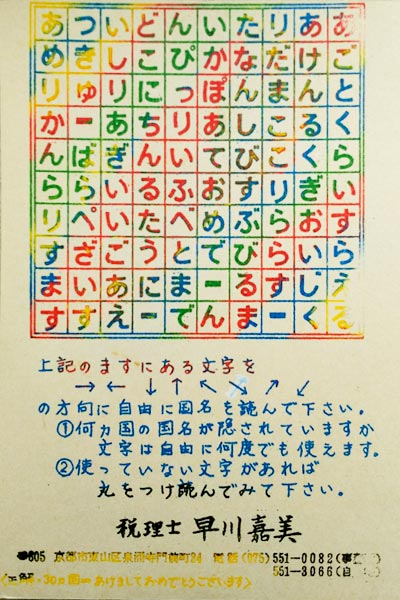 あついどんいたりああ
めきしこぴかなだけご
りゅりにっぽんまんと
かーあちりあしこるく
んばぎんいてびこくら
らいるふおすりぎい
りぺいたべめぶらおす
すざごうとでびらいら
ますあにまーるすじえ
すすえーでんまーくる
上記のますにある文字を
→ ← ↓ ↑ ↖ ↘ ↗ ↙
の方向に自由に国名を読んで下さい。
①何ヵ国の国名が隠されていますか
文字は自由に何度でも使えます。
②使っていない文字があれば
丸をつけ読んでみて下さい。
税理士 早川嘉美
605 京都市東山区泉涌寺門前町24 電話(075)551-0082(事
551-3066(自
30カ国 ーあけましておめでとうございます〉